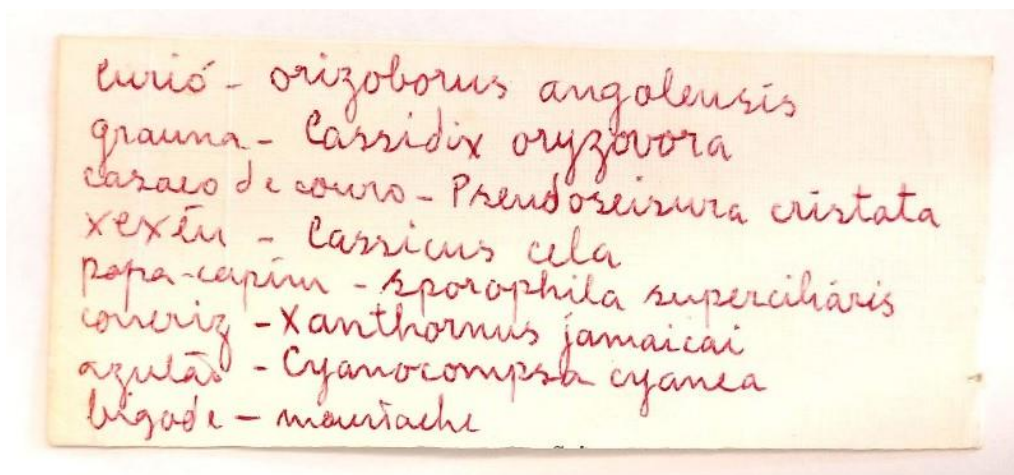 curió - orizoborus angolensis
grauna - Cassidix oryzovora
casaco de couro - Pseudoseisura cristata
xexéu - Cassicus cela
papa-capim - sporophila superciliáris
concriz - Xanthornus jamaicai
azulão - Cyanocompsa cyanea
bigode - moustache